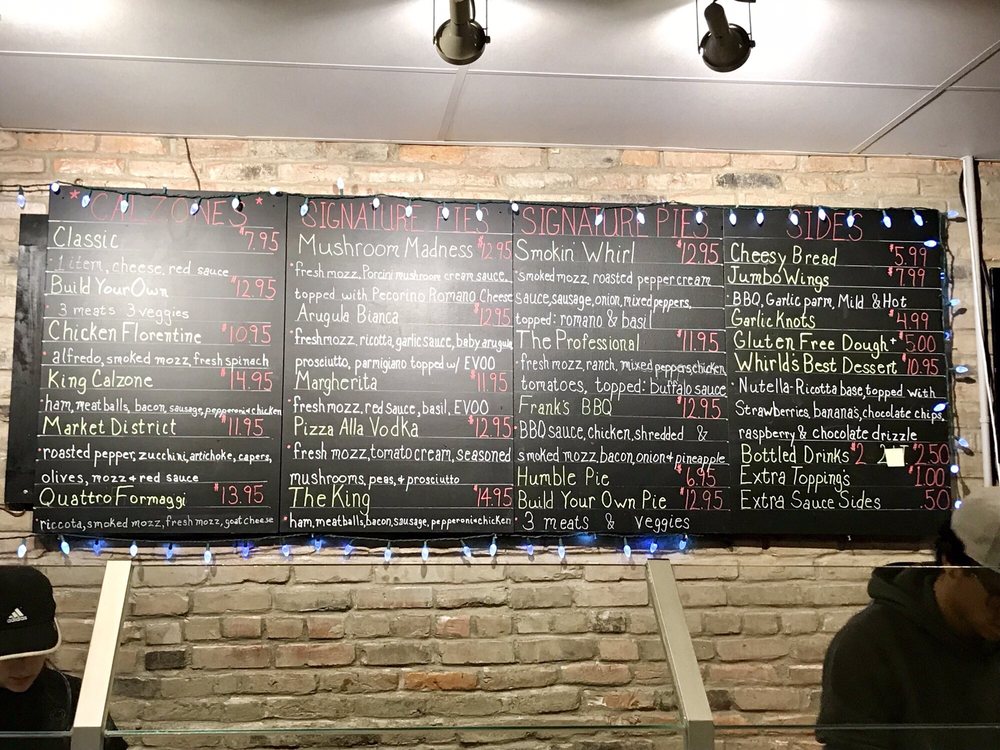 * CALZONES *
Classic $7.95
• 1 item, cheese, red sauce
Build Your Own $12.95
3 meats 3 veggies
Chicken Florentine $10.95
• alfredo, smoked mozz, fresh spinach
King Calzone $14.95
ham, meatballs, bacon, sausage, pepperoni & chicken
Market District $11.95
• roasted pepper, zucchini, artichoke, capers,
olives, mozz & red sauce
Quattro Formaggi $13.95
• riccota, smoked mozz, fresh mozz, goat cheese
SIGNATURE PIES
Mushroom Madness $12.95
• fresh mozz, Porcini mushroom cream sauce,
topped with Pecorino Romano Cheese
Arugula Bianca $12.95
fresh mozz, ricotta, garlic sauce, baby arugula
prosciutto, parmigiano topped w/ EVOO
Margherita $11.95
• fresh mozz, red sauce, basil, EVOO
Pizza Alla Vodka $12.95
• fresh mozz, tomato cream, seasoned
mushrooms, peas, & prosciutto
The King $14.95
• ham, meatballs, bacon, sausage, pepperoni & chicken
SIGNATURE PIES
Smokin' Whirl $12.95
• smoked mozz, roasted pepper cream
sauce, sausage, onion, mixed peppers,
topped: romano & basil
The Professional $11.95
• fresh mozz, ranch, mixed peppers, chicken,
tomatoes, topped: buffalo sauce
Frank's BBQ $12.95
• BBQ sauce, chicken, shredded &
smoked mozz, bacon, onion & pineapple
Humble Pie $6.95
Build Your Own Pie $12.95
• 3 meats & veggies
SIDES
Cheesy Bread $5.99
Jumbo Wings $7.99
• BBQ, Garlic parm, Mild & Hot
Garlic Knots $4.99
Gluten Free Dough + $5.00
Whirld's Best Dessert $10.95
• Nutella-Ricotta base, topped with
Strawberries, banana's, chocolate chips,
raspberry & chocolate drizzle
Bottled Drinks $2 $2.50
Extra Toppings $1.00
Extra Sauce Sides .50
adidas